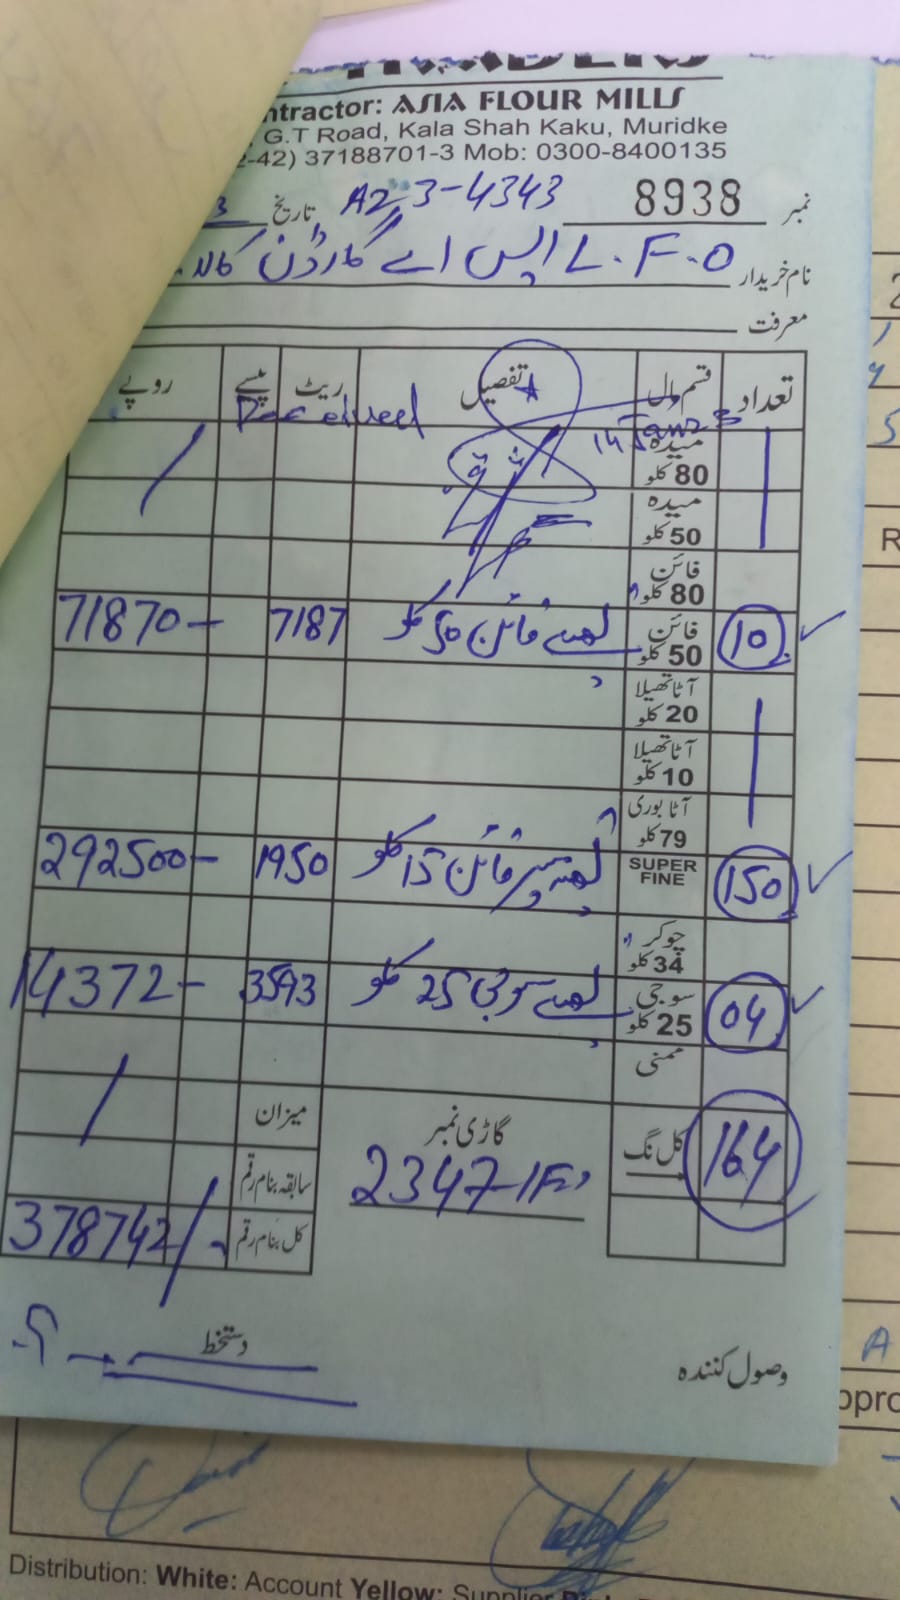 TRADERS
ntractor: ASIA FLOUR MILLS
G.T Road, Kala Shah Kaku, Muridke
2-42) 37188701-3 Mob: 0300-8400135
نمبر 8938 A23-4343 تاریخ 3
نام خریدار L.F.O ایس اے گارڈن کالا
معرفت
تعداد قسم مال تفصیل ریٹ پیسے روپے
Received
میدہ 80 کلو
میدہ 50 کلو
فائن 80 کلو
10 فائن 50 کلو فائن 50 کلو 7187 71870-
آٹا تھیلا 20 کلو
آٹا تھیلا 10 کلو
آٹا بوری 79 کلو
150 SUPER FINE سپر فائن 15 کلو 1950 292500-
چوکر 34 کلو
04 سوجی 25 کلو سوجی 25 کلو 3593 14372-
ممنی
164 کل نگ گاڑی نمبر میزان
2347 سابقہ بنام رقم
کل بنام رقم 378742/-
دستخط
وصول کنندہ
Distribution: White: Account Yellow: Supplier